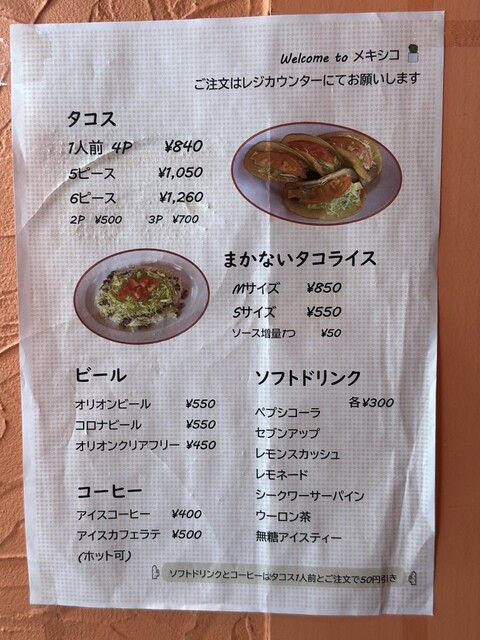 Welcome to メキシコ
ご注文はレジカウンターにてお願いします
タコス
1人前 4P ¥840
5ピース ¥1,050
6ピース ¥1,260
2P ¥500 3P ¥700
まかないタコライス
Mサイズ ¥850
Sサイズ ¥550
ソース増量1つ ¥50
ビール
オリオンビール ¥550
コロナビール ¥550
オリオンクリアフリー ¥450
コーヒー
アイスコーヒー ¥400
アイスカフェラテ ¥500
(ホット可)
ソフトドリンク
各¥300
ペプシコーラ
セブンアップ
レモンスカッシュ
レモネード
シークワーサーパイン
ウーロン茶
無糖アイスティー
ソフトドリンクとコーヒーはタコス1人前とご注文で50円引き